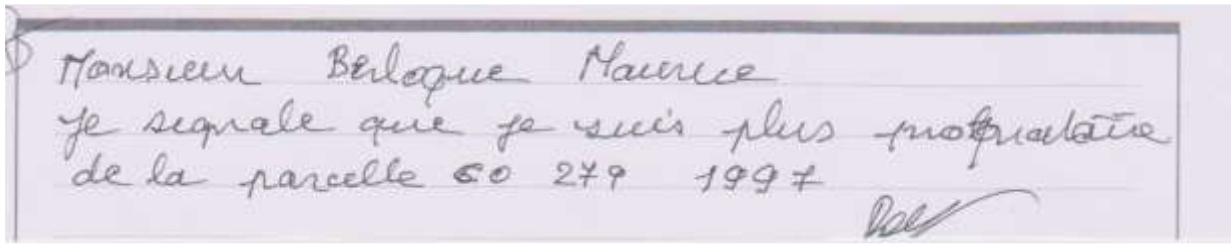 Monsieur Berloque Maurice
je signale que je suis plus propriataire
de la parcelle 60 279 1997